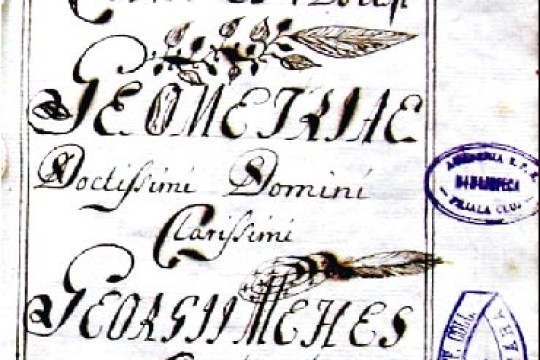 GEOMETRIAE
Doctissimi Domini
Clarissimi
GEORGII MEHES
ACADEMIA R.P.R.
BIBLIOTECA
FILIALA CLUJ
COLL.